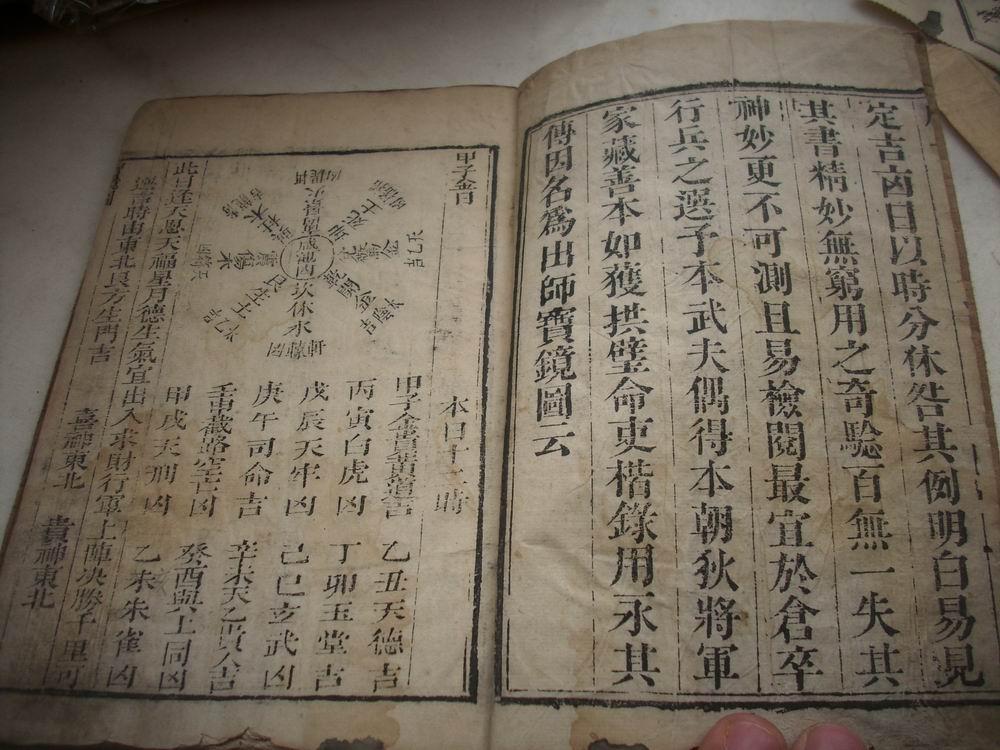 定吉凶日以時分休咎其例明白易見
其書精妙無窮用之奇驗百無一失其
神妙更不可測且易檢閱最宜於倉卒
行兵之選予本武夫偶得本朝狄將軍
家藏善本如獲拱璧命吏楷錄用永其
傳因名為出師寶鏡圖云
甲子金日
本日十二時
甲子金貴黃道吉 乙丑天德吉
丙寅白虎凶 丁卯玉堂吉
戊辰天牢凶 己巳玄武凶
庚午司命吉 辛未天乙貴人吉
壬申截路空亡凶 癸酉與上同凶
甲戌天刑凶 乙未朱雀凶
坎休水
軒轅凶
艮生土
太乙吉
乾開金
此日逢天恩天福星月德生氣宜出入求財行軍上陣決勝千里可
選吉時由東北艮方生門吉 喜神東北 貴神東北